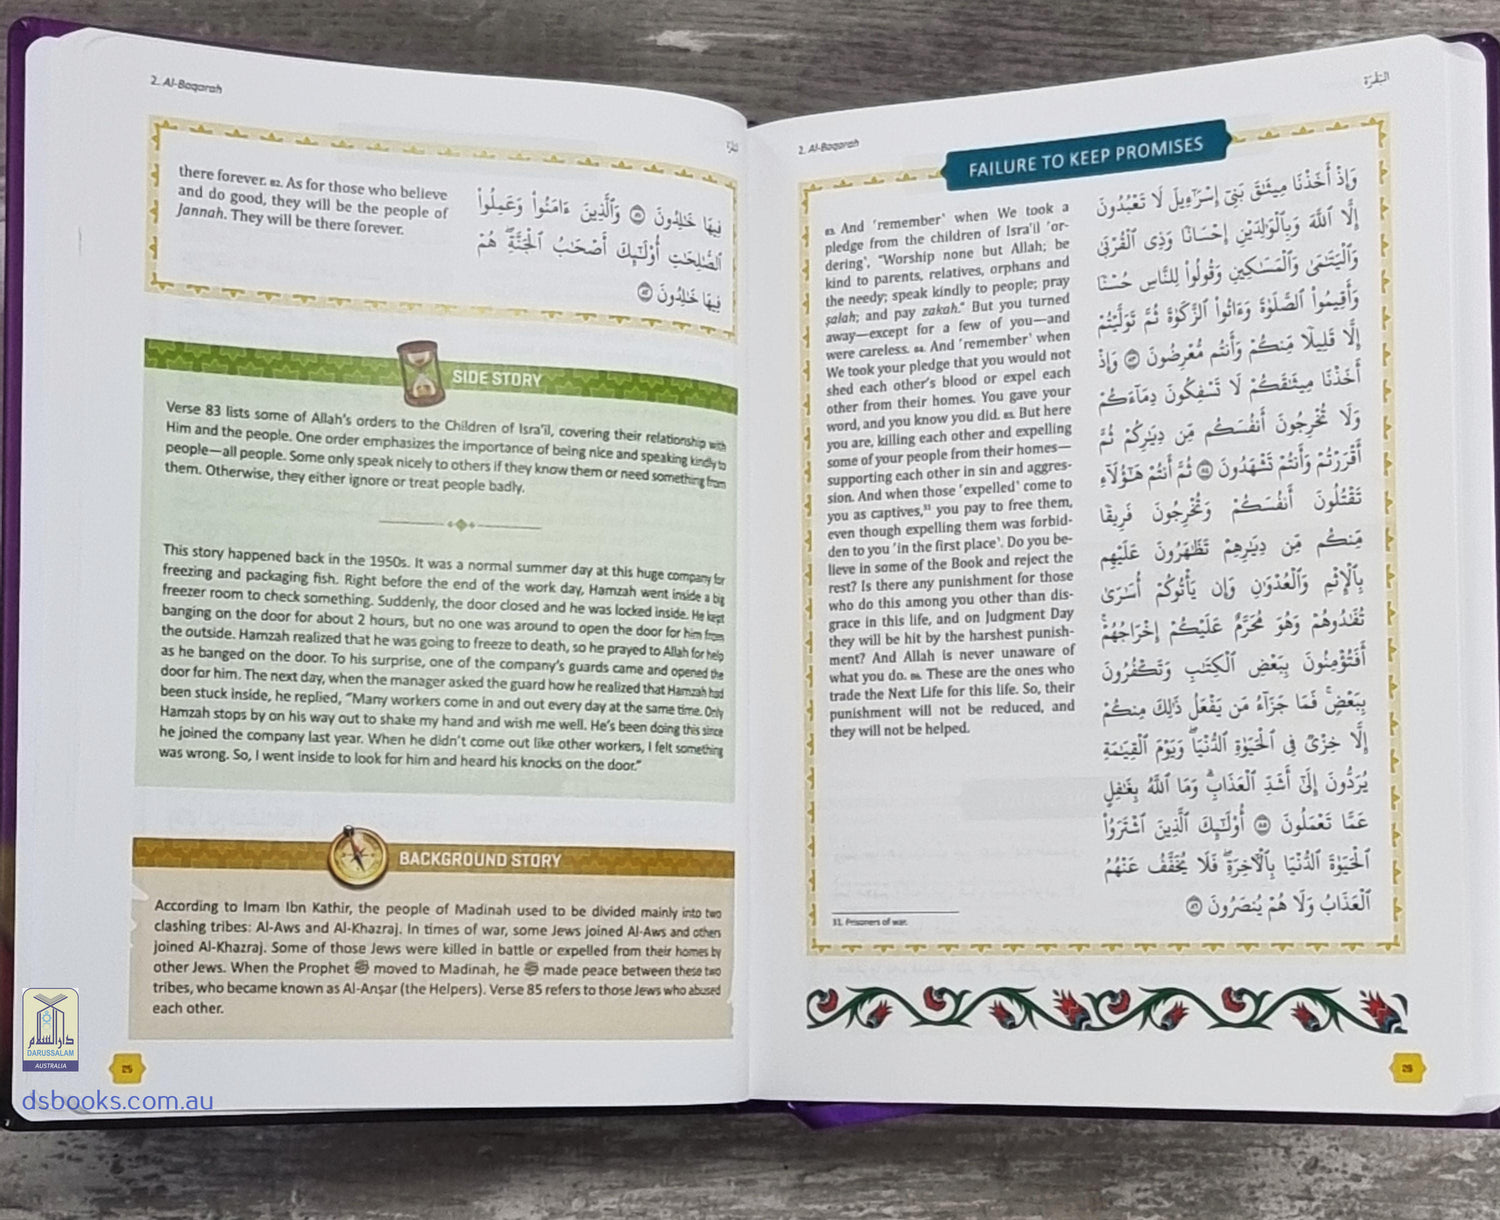 2. Al-Baqarah
there forever. 82. As for those who believe
and do good, they will be the people of
Jannah. They will be there forever.
فِيهَا خَٰلِدُونَ ٨١ وَٱلَّذِينَ ءَامَنُوا۟ وَعَمِلُوا۟
ٱلصَّٰلِحَٰتِ أُو۟لَٰٓئِكَ أَصْحَٰبُ ٱلْجَنَّةِ ۖ هُمْ
فِيهَا خَٰلِدُونَ ٨٢
SIDE STORY
Verse 83 lists some of Allah's orders to the Children of Isra'il, covering their relationship with
Him and the people. One order emphasizes the importance of being nice and speaking kindly to
people—all people. Some only speak nicely to others if they know them or need something from
them. Otherwise, they either ignore or treat people badly.
This story happened back in the 1950s. It was a normal summer day at this huge company for
freezing and packaging fish. Right before the end of the work day, Hamzah went inside a big
freezer room to check something. Suddenly, the door closed and he was locked inside. He kept
banging on the door for about 2 hours, but no one was around to open the door for him from
the outside. Hamzah realized that he was going to freeze to death, so he prayed to Allah for help
as he banged on the door. To his surprise, one of the company's guards came and opened the
door for him. The next day, when the manager asked the guard how he realized that Hamzah had
been stuck inside, he replied, "Many workers come in and out every day at the same time. Only
Hamzah stops by on his way out to shake my hand and wish me well. He's been doing this since
he joined the company last year. When he didn't come out like other workers, I felt something
was wrong. So, I went inside to look for him and heard his knocks on the door."
BACKGROUND STORY
According to Imam Ibn Kathir, the people of Madinah used to be divided mainly into two
clashing tribes: Al-Aws and Al-Khazraj. In times of war, some Jews joined Al-Aws and others
joined Al-Khazraj. Some of those Jews were killed in battle or expelled from their homes by
other Jews. When the Prophet ﷺ moved to Madinah, he ﷺ made peace between these two
tribes, who became known as Al-Anṣar (the Helpers). Verse 85 refers to those Jews who abused
each other.
دار السلام
DARUSSALAM
AUSTRALIA
25
dsbooks.com.au
2. Al-Baqarah
البَقَرَة
FAILURE TO KEEP PROMISES
83. And 'remember' when We took a
pledge from the children of Isra'il 'or-
dering', "Worship none but Allah; be
kind to parents, relatives, orphans and
the needy; speak kindly to people; pray
ṣalah; and pay zakah." But you turned
away—except for a few of you—and
were careless. 84. And 'remember' when
We took your pledge that you would not
shed each other's blood or expel each
other from their homes. You gave your
word, and you know you did. 85. But here
you are, killing each other and expelling
some of your people from their homes—
supporting each other in sin and aggres-
sion. And when those 'expelled' come to
you as captives,³¹ you pay to free them,
even though expelling them was forbid-
den to you 'in the first place'. Do you be-
lieve in some of the Book and reject the
rest? Is there any punishment for those
who do this among you other than dis-
grace in this life, and on Judgment Day
they will be hit by the harshest punish-
ment? And Allah is never unaware of
what you do. 86. These are the ones who
trade the Next Life for this life. So, their
punishment will not be reduced, and
they will not be helped.
31. Prisoners of war.
وَإِذْ أَخَذْنَا مِيثَٰقَ بَنِىٓ إِسْرَٰٓءِيلَ لَا تَعْبُدُونَ
إِلَّا ٱللَّهَ وَبِٱلْوَٰلِدَيْنِ إِحْسَانًا وَذِى ٱلْقُرْبَىٰ
وَٱلْيَتَٰمَىٰ وَٱلْمَسَٰكِينِ وَقُولُوا۟ لِلنَّاسِ حُسْنًا
وَأَقِيمُوا۟ ٱلصَّلَوٰةَ وَءَاتُوا۟ ٱلزَّكَوٰةَ ثُمَّ تَوَلَّيْتُمْ
إِلَّا قَلِيلًا مِّنكُمْ وَأَنتُم مُّعْرِضُونَ ٨٣ وَإِذْ
أَخَذْنَا مِيثَٰقَكُمْ لَا تَسْفِكُونَ دِمَآءَكُمْ
وَلَا تُخْرِجُونَ أَنفُسَكُم مِّن دِيَٰرِكُمْ ثُمَّ
أَقْرَرْتُمْ وَأَنتُمْ تَشْهَدُونَ ٨٤ ثُمَّ أَنتُمْ هَٰٓؤُلَآءِ
تَقْتُلُونَ أَنفُسَكُمْ وَتُخْرِجُونَ فَرِيقًا
مِّنكُم مِّن دِيَٰرِهِمْ تَظَٰهَرُونَ عَلَيْهِم
بِٱلْإِثْمِ وَٱلْعُدْوَٰنِ وَإِن يَأْتُوكُمْ أُسَٰرَىٰ
تُفَٰدُوهُمْ وَهُوَ مُحَرَّمٌ عَلَيْكُمْ إِخْرَاجُهُمْ ۚ
أَفَتُؤْمِنُونَ بِبَعْضِ ٱلْكِتَٰبِ وَتَكْفُرُونَ
بِبَعْضٍ ۚ فَمَا جَزَآءُ مَن يَفْعَلُ ذَٰلِكَ مِنكُمْ
إِلَّا خِزْىٌ فِى ٱلْحَيَوٰةِ ٱلدُّنْيَا ۖ وَيَوْمَ ٱلْقِيَٰمَةِ
يُرَدُّونَ إِلَىٰٓ أَشَدِّ ٱلْعَذَابِ ۗ وَمَا ٱللَّهُ بِغَٰفِلٍ
عَمَّا تَعْمَلُونَ ٨٥ أُو۟لَٰٓئِكَ ٱلَّذِينَ ٱشْتَرَوُا۟
ٱلْحَيَوٰةَ ٱلدُّنْيَا بِٱلْءَاخِرَةِ ۖ فَلَا يُخَفَّفُ عَنْهُمُ
ٱلْعَذَابُ وَلَا هُمْ يُنصَرُونَ ٨٦